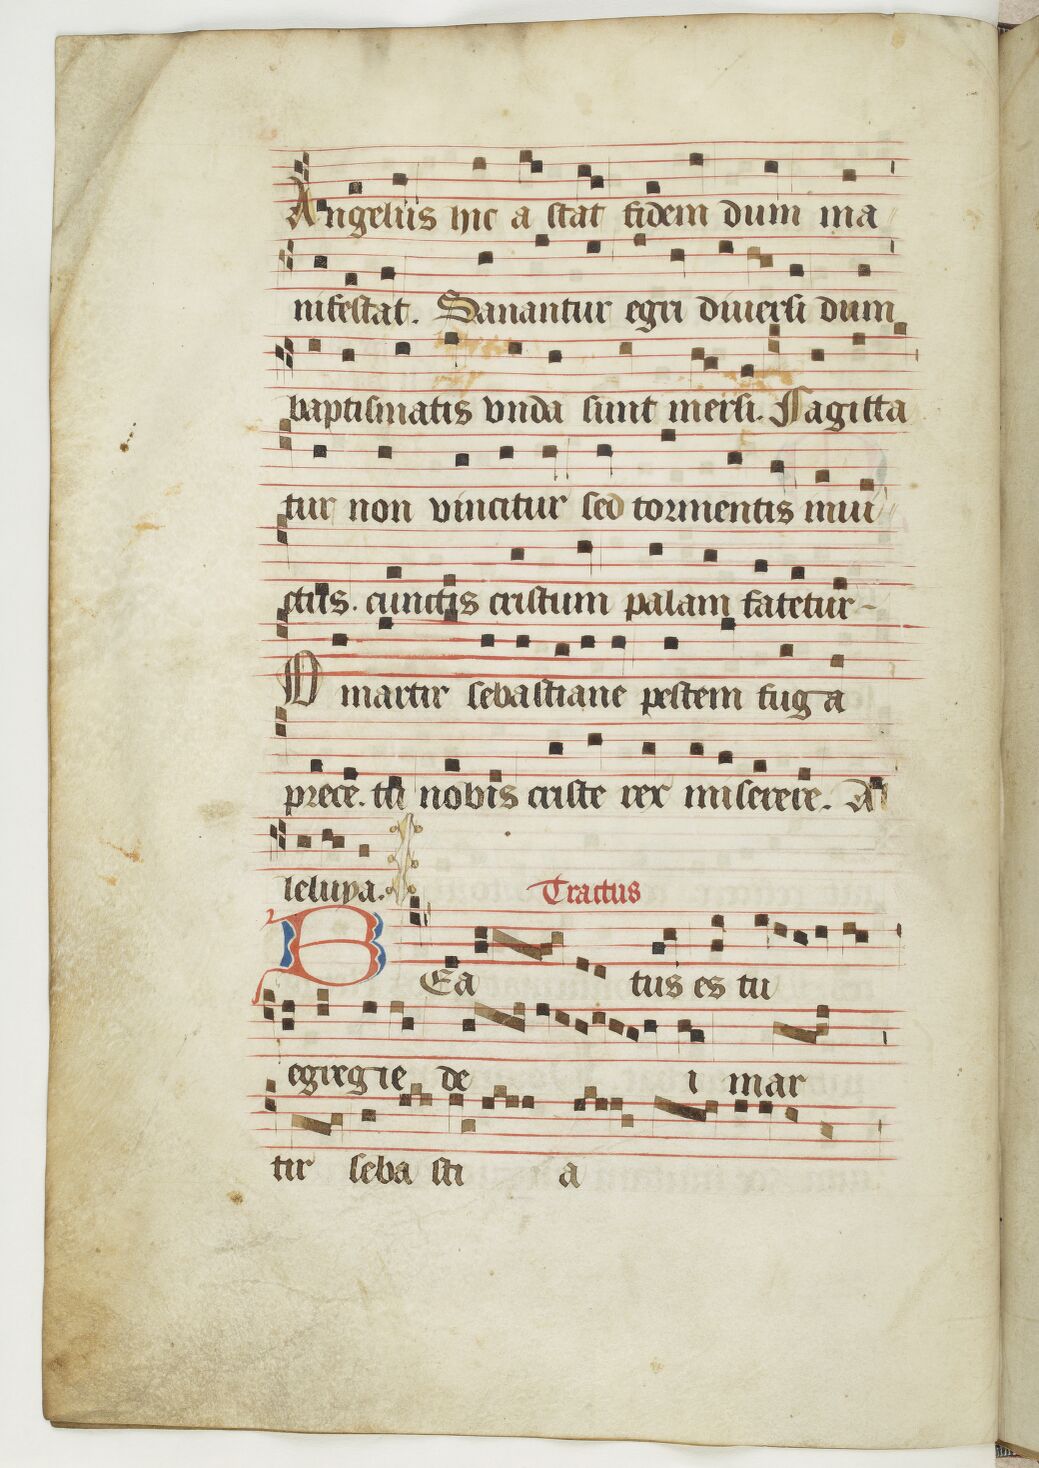 Angelus hic a stat fidem dum ma
nifestat. Sanantur egri diuersi dum
baptismatis vnda sunt mersi. Sagitta
tur non vincitur sed tormentis inui
ctus. cunctis cristum palam fatetur
O martir sebastiane pestem fuga
prece. tu nobis criste rex miserere. Al
leluya. Tractus
BEa tus es tu
egregie de i mar
tir seba sti a